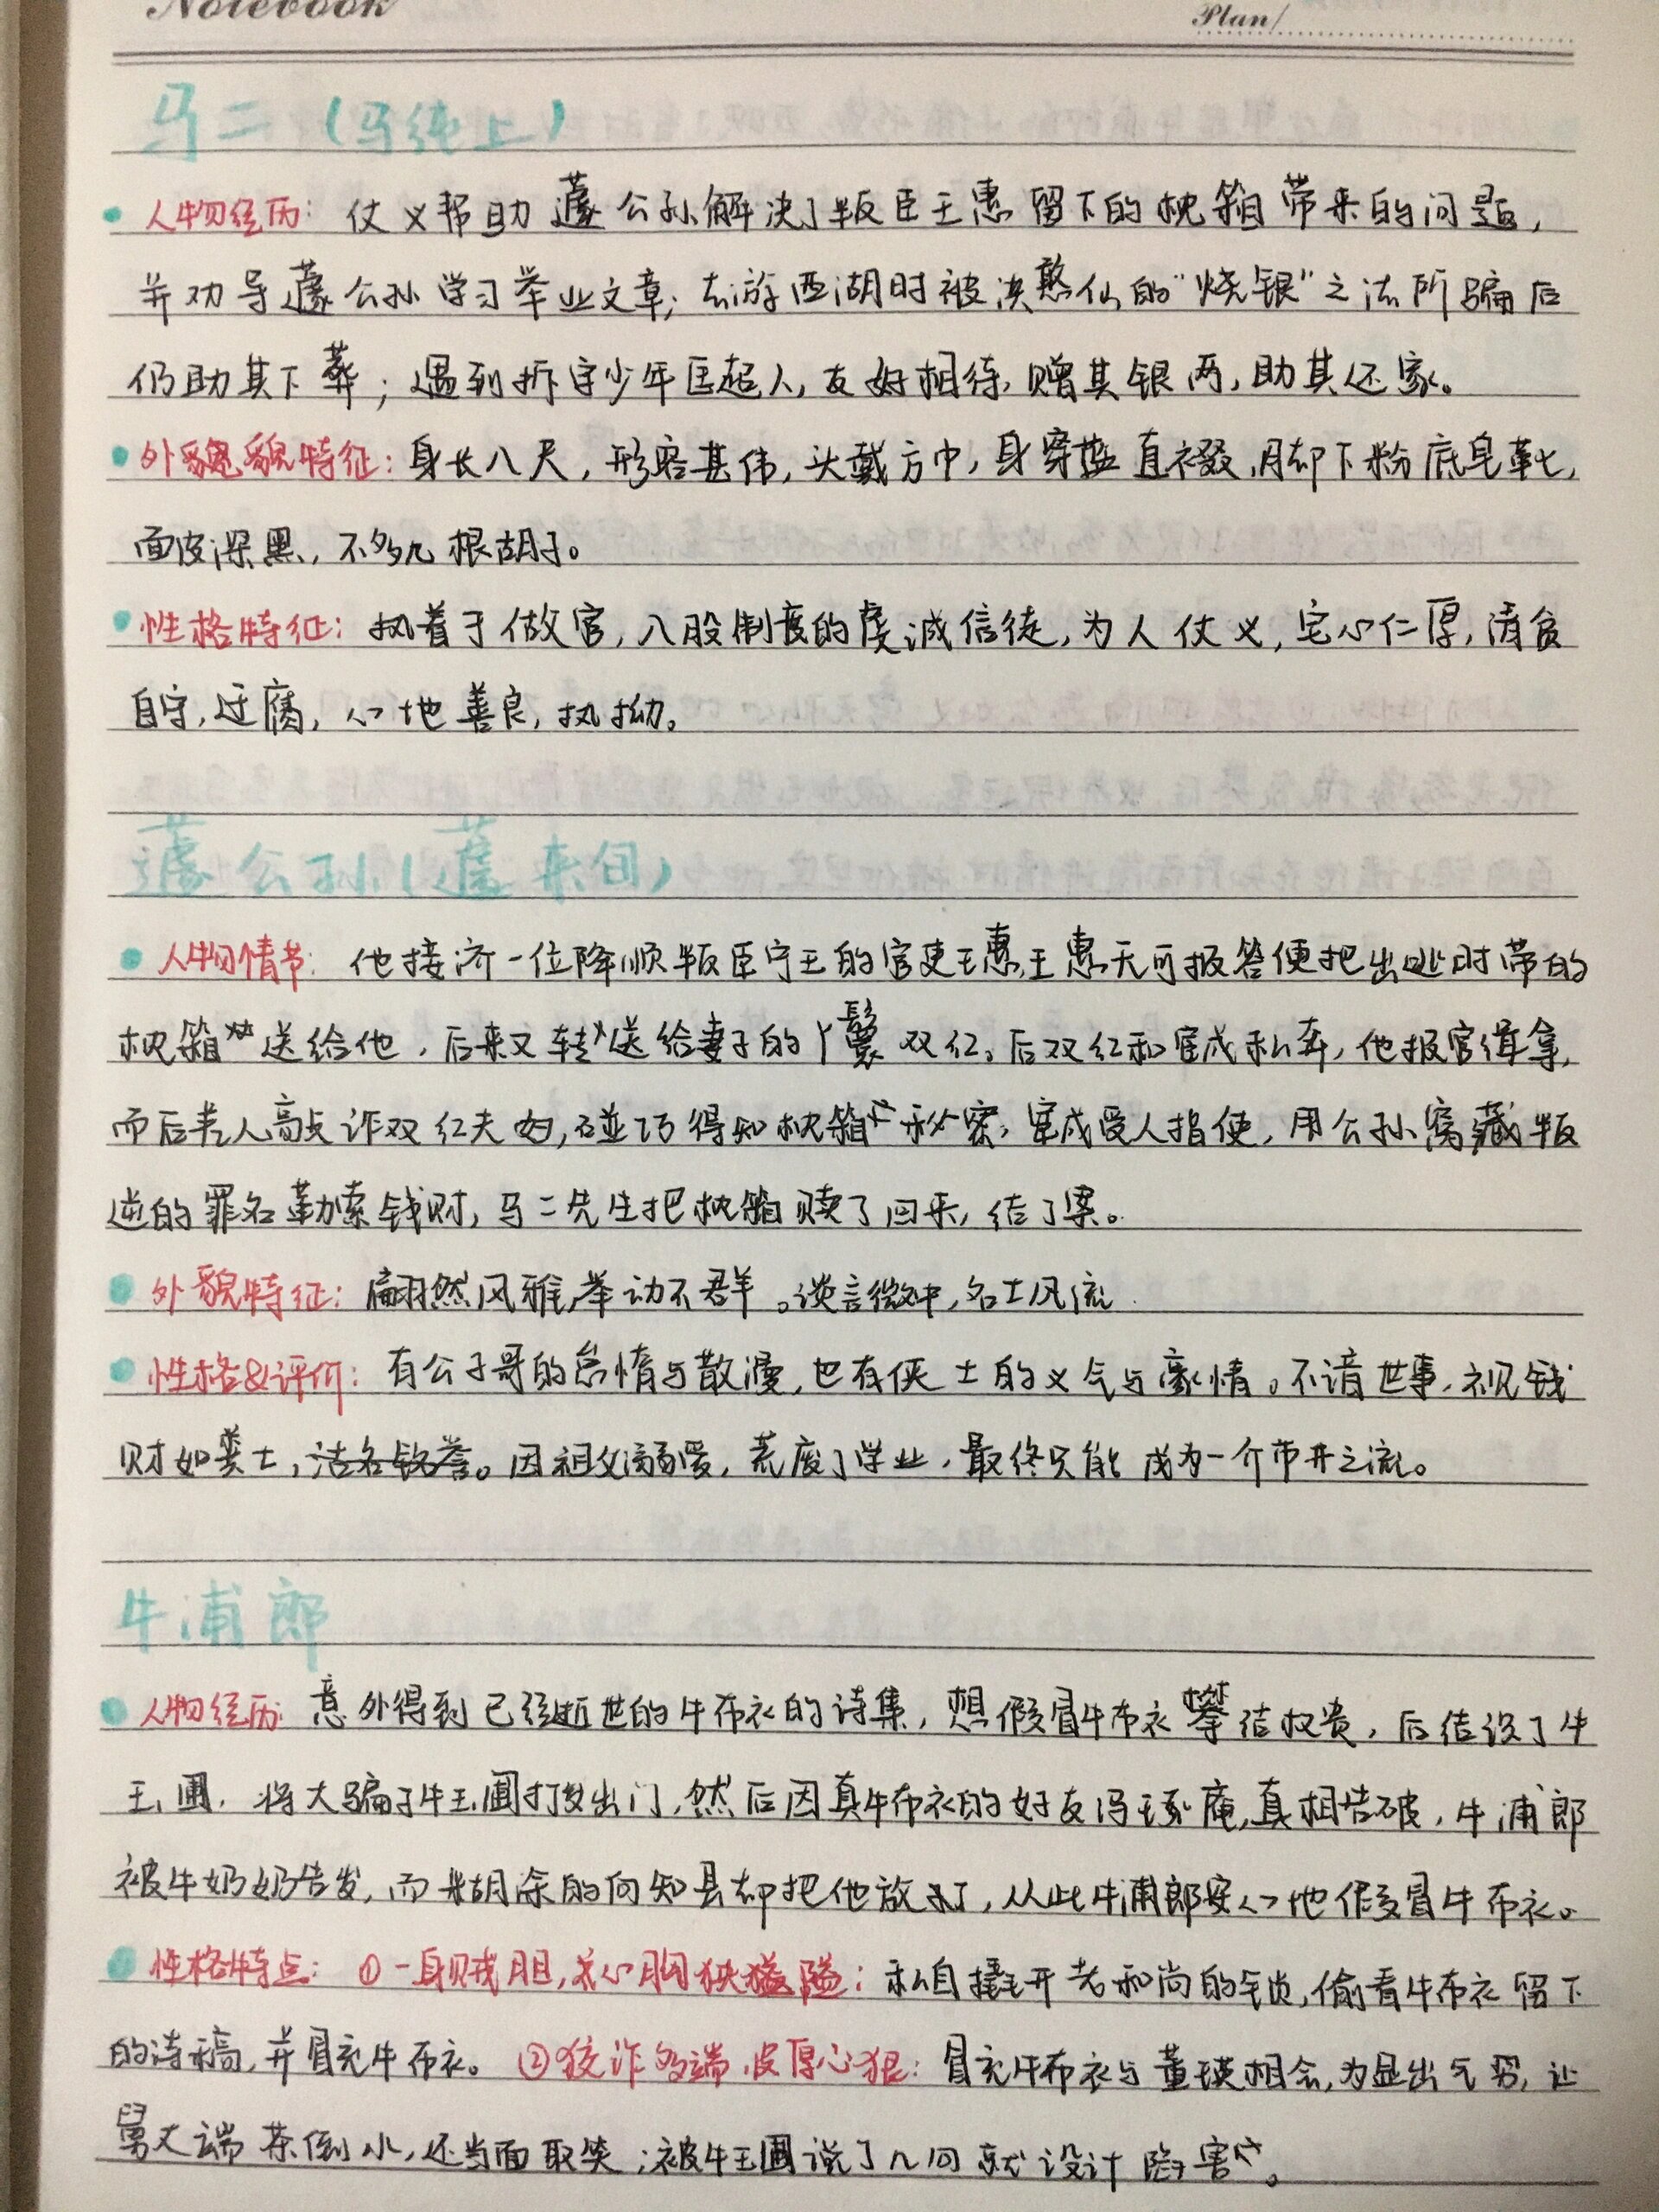 Notebook
Plan/
马二（马纯上）
人物经历：仗义帮助蘧公孙解决了叛臣王惠留下的枕箱带来的问题，
并劝导蘧公孙学习举业文章；去游西湖时被洪憨仙的“烧银”之法所骗后
仍助其下葬；遇到拆字少年匡超人，友好相待，赠其银两，助其还家。
外貌特征：身长八尺，形容甚伟，头戴方巾，身穿蓝直裰，脚下粉底皂靴，
面皮深黑，不多几根胡子。
性格特征：执着于做官，八股制度的虔诚信徒，为人仗义，宅心仁厚，清贫
自守，迂腐，心地善良，执拗。
蘧公孙（蘧来旬）
人物情节：他接济一位降顺叛臣宁王的官吏王惠，王惠无可报答便把出逃时带的
枕箱送给他，后来又转送给妻子的丫鬟双红。后双红和宦成私奔，他报官缉拿，
而后差人敲诈双红夫妇，碰巧得知枕箱秘密，宦成受人指使，用公孙窝藏叛
逆的罪名勒索钱财，马二先生把枕箱赎了回来，结了案。
外貌特征：翩翩然风雅，举动不群。谈言微中，名士风流
性格&评价：有公子哥的怠惰与散漫，也有侠士的义气与豪情。不谙世事，视钱
财如粪土，沽名钓誉。因祖父溺爱，荒废了学业，最终只能成为一介市井之流。
牛浦郎
人物经历：意外得到已经逝世的牛布衣的诗集，想假冒牛布衣攀结权贵，后结识了牛
玉圃，将大骗子牛玉圃打发出门，然后因真牛布衣的好友冯琢庵，真相告破，牛浦郎
被牛奶奶告发，而糊涂的向知县却把他放了，从此牛浦郎安心地假冒牛布衣。
性格特点：①一身贼胆，心胸狭隘：私自撬开老和尚的锁，偷看牛布衣留下
的诗稿，并冒充牛布衣。②狡诈多端，皮厚心狠：冒充牛布衣与董瑛相会，为显出气势，让
舅丈端茶倒水，还当面取笑；被牛玉圃说了几句就设计陷害。